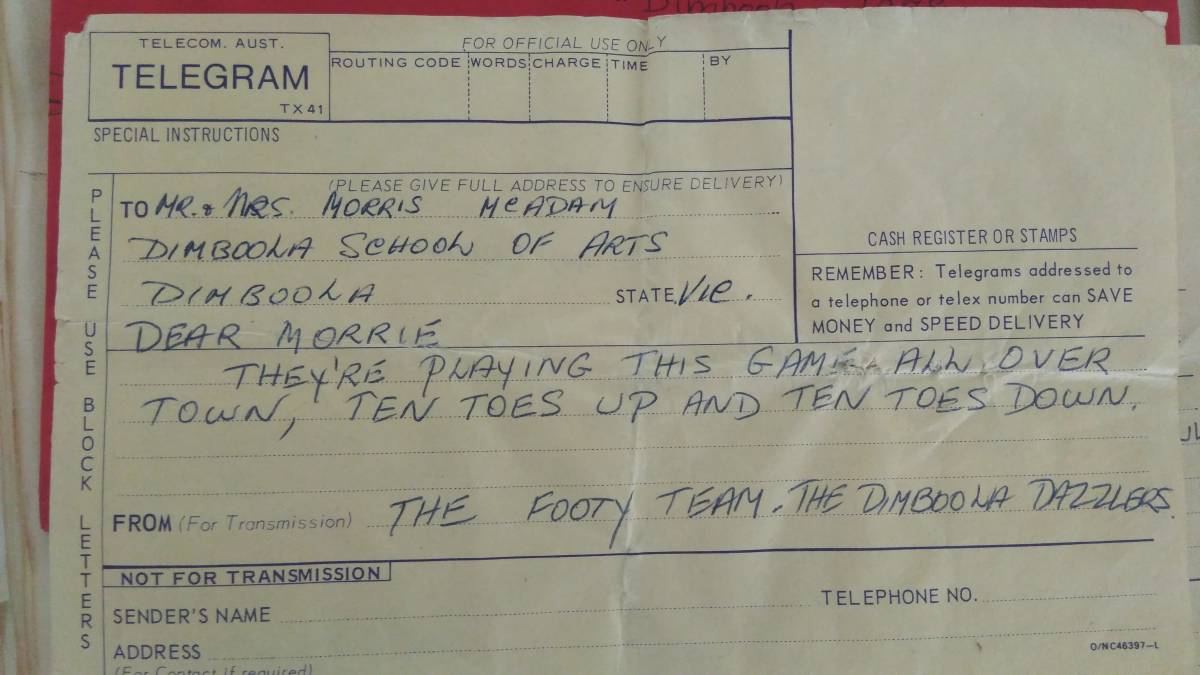 "Dimboola
TELECOM. AUST.
TELEGRAM
TX41
FOR OFFICIAL USE ONLY
ROUTING CODE WORDS CHARGE TIME BY
SPECIAL INSTRUCTIONS
(PLEASE GIVE FULL ADDRESS TO ENSURE DELIVERY)
TO MR. & MRS. MORRIS McADAM
DIMBOOLA SCHOOL OF ARTS
DIMBOOLA STATE VIC.
DEAR MORRIE
THEY'RE PLAYING THIS GAME ALL OVER
TOWN, TEN TOES UP AND TEN TOES DOWN.
FROM (For Transmission) THE FOOTY TEAM. THE DIMBOOLA DAZZLERS.
CASH REGISTER OR STAMPS
REMEMBER: Telegrams addressed to
a telephone or telex number can SAVE
MONEY and SPEED DELIVERY
PLEASE USE BLOCK LETTERS
NOT FOR TRANSMISSION
SENDER'S NAME TELEPHONE NO.
ADDRESS
(For Contact if required)
O/NC46397-L